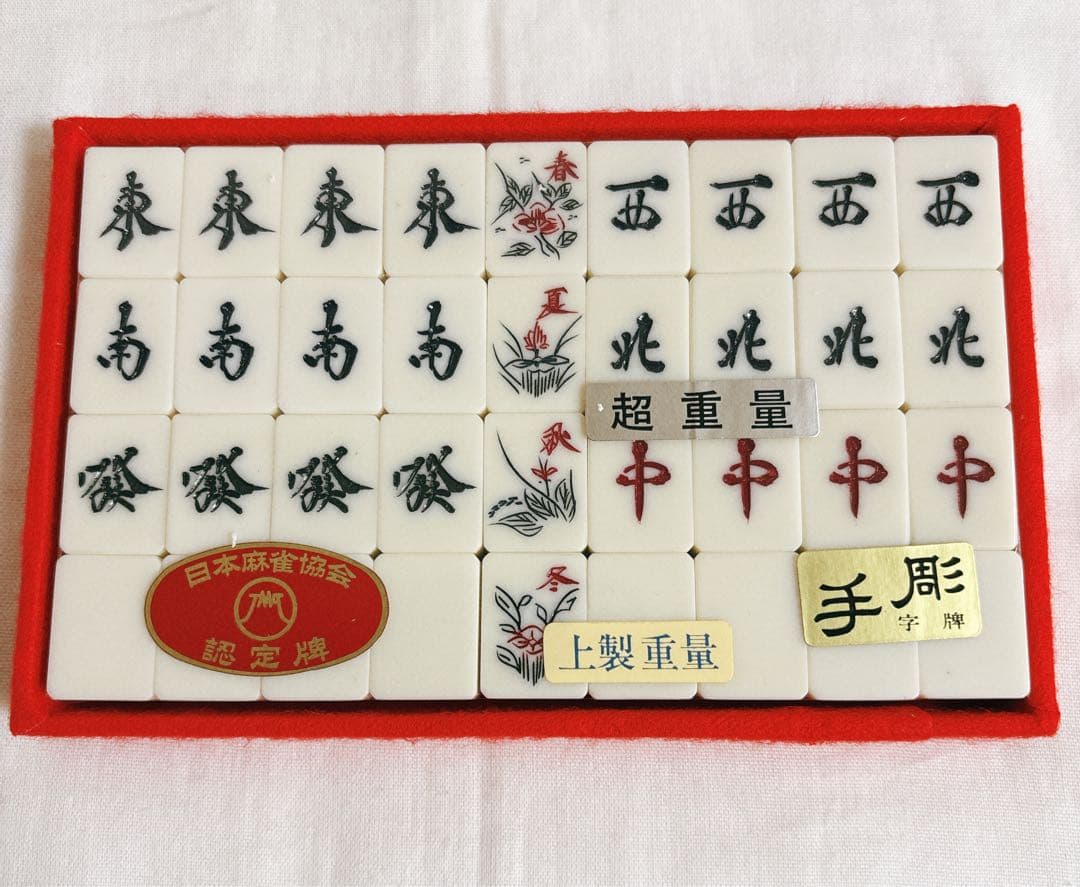 東 東 東 東 春 西 西 西 西
南 南 南 南 夏 北 北 北 北
超重量
發 發 發 發 秋 中 中 中 中
日本麻雀協会
認定牌
冬
上製重量
手彫
字牌